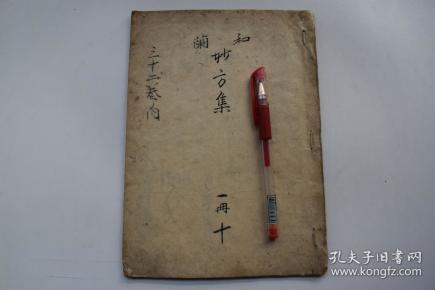 和蘭
妙方集
一冊十
三十二巻内
孔夫子旧书网
www.kongfz.com